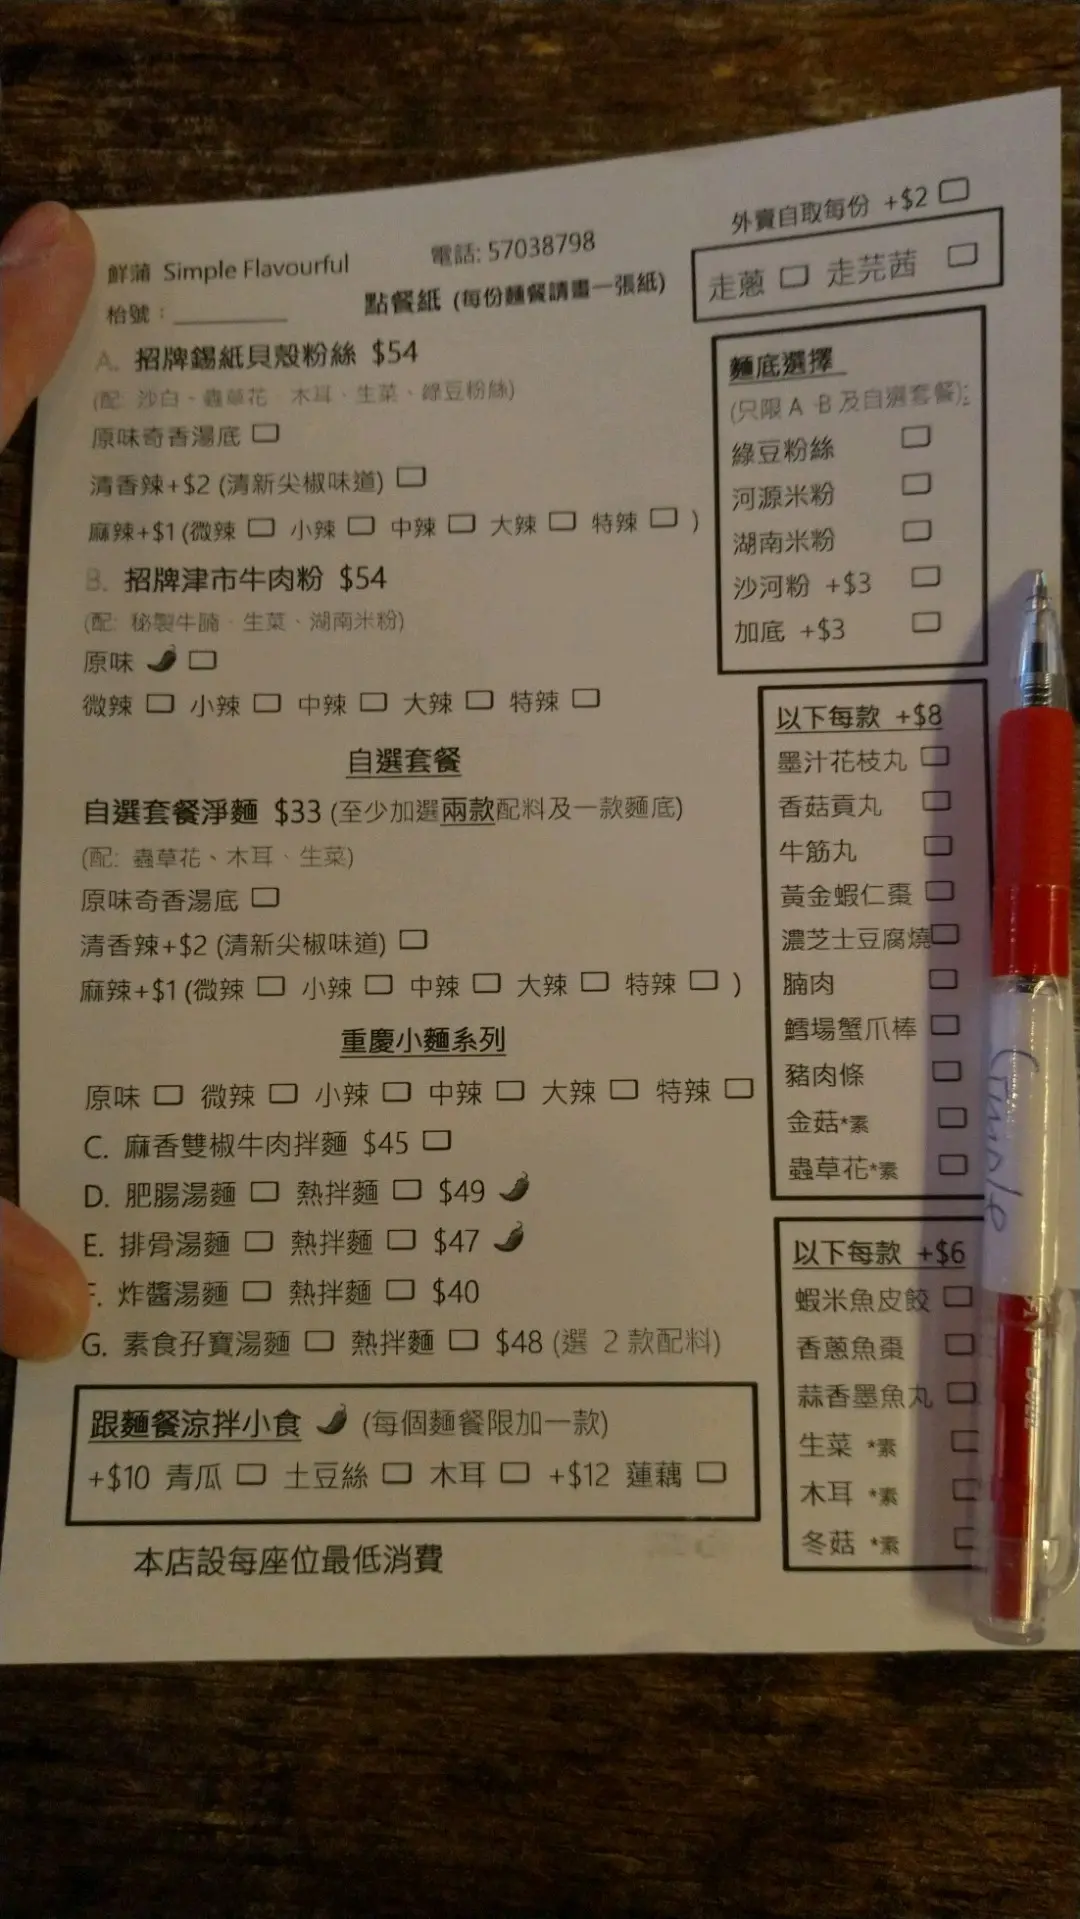 外賣自取每份 +$2 □
鮮蒲 Simple Flavourful
電話: 57038798
枱號：
點餐紙 (每份麵餐請畫一張紙)
走蔥 □ 走芫茜 □
A. 招牌錫紙貝殼粉絲 $54
(配: 沙白、蟲草花、木耳、生菜、綠豆粉絲)
原味奇香湯底 □
清香辣+$2 (清新尖椒味道) □
麻辣+$1 (微辣 □ 小辣 □ 中辣 □ 大辣 □ 特辣 □ )
B. 招牌津市牛肉粉 $54
(配: 秘製牛腩、生菜、湖南米粉)
原味 □
微辣 □ 小辣 □ 中辣 □ 大辣 □ 特辣 □
自選套餐
自選套餐淨麵 $33 (至少加選兩款配料及一款麵底)
(配: 蟲草花、木耳、生菜)
原味奇香湯底 □
清香辣+$2 (清新尖椒味道) □
麻辣+$1 (微辣 □ 小辣 □ 中辣 □ 大辣 □ 特辣 □ )
重慶小麵系列
原味 □ 微辣 □ 小辣 □ 中辣 □ 大辣 □ 特辣 □
C. 麻香雙椒牛肉拌麵 $45 □
D. 肥腸湯麵 □ 熱拌麵 □ $49
E. 排骨湯麵 □ 熱拌麵 □ $47
F. 炸醬湯麵 □ 熱拌麵 □ $40
G. 素食孖寶湯麵 □ 熱拌麵 □ $48 (選 2 款配料)
跟麵餐涼拌小食 (每個麵餐限加一款)
+$10 青瓜 □ 土豆絲 □ 木耳 □ +$12 蓮藕 □
本店設每座位最低消費
麵底選擇
(只限 A、B 及自選套餐):
綠豆粉絲 □
河源米粉 □
湖南米粉 □
沙河粉 +$3 □
加底 +$3 □
以下每款 +$8
墨汁花枝丸 □
香菇貢丸 □
牛筋丸 □
黃金蝦仁棗 □
濃芝士豆腐燒 □
腩肉 □
鱈場蟹爪棒 □
豬肉條 □
金菇*素 □
蟲草花*素 □
以下每款 +$6
蝦米魚皮餃 □
香蔥魚棗 □
蒜香墨魚丸 □
生菜 *素 □
木耳 *素 □
冬菇 *素 □